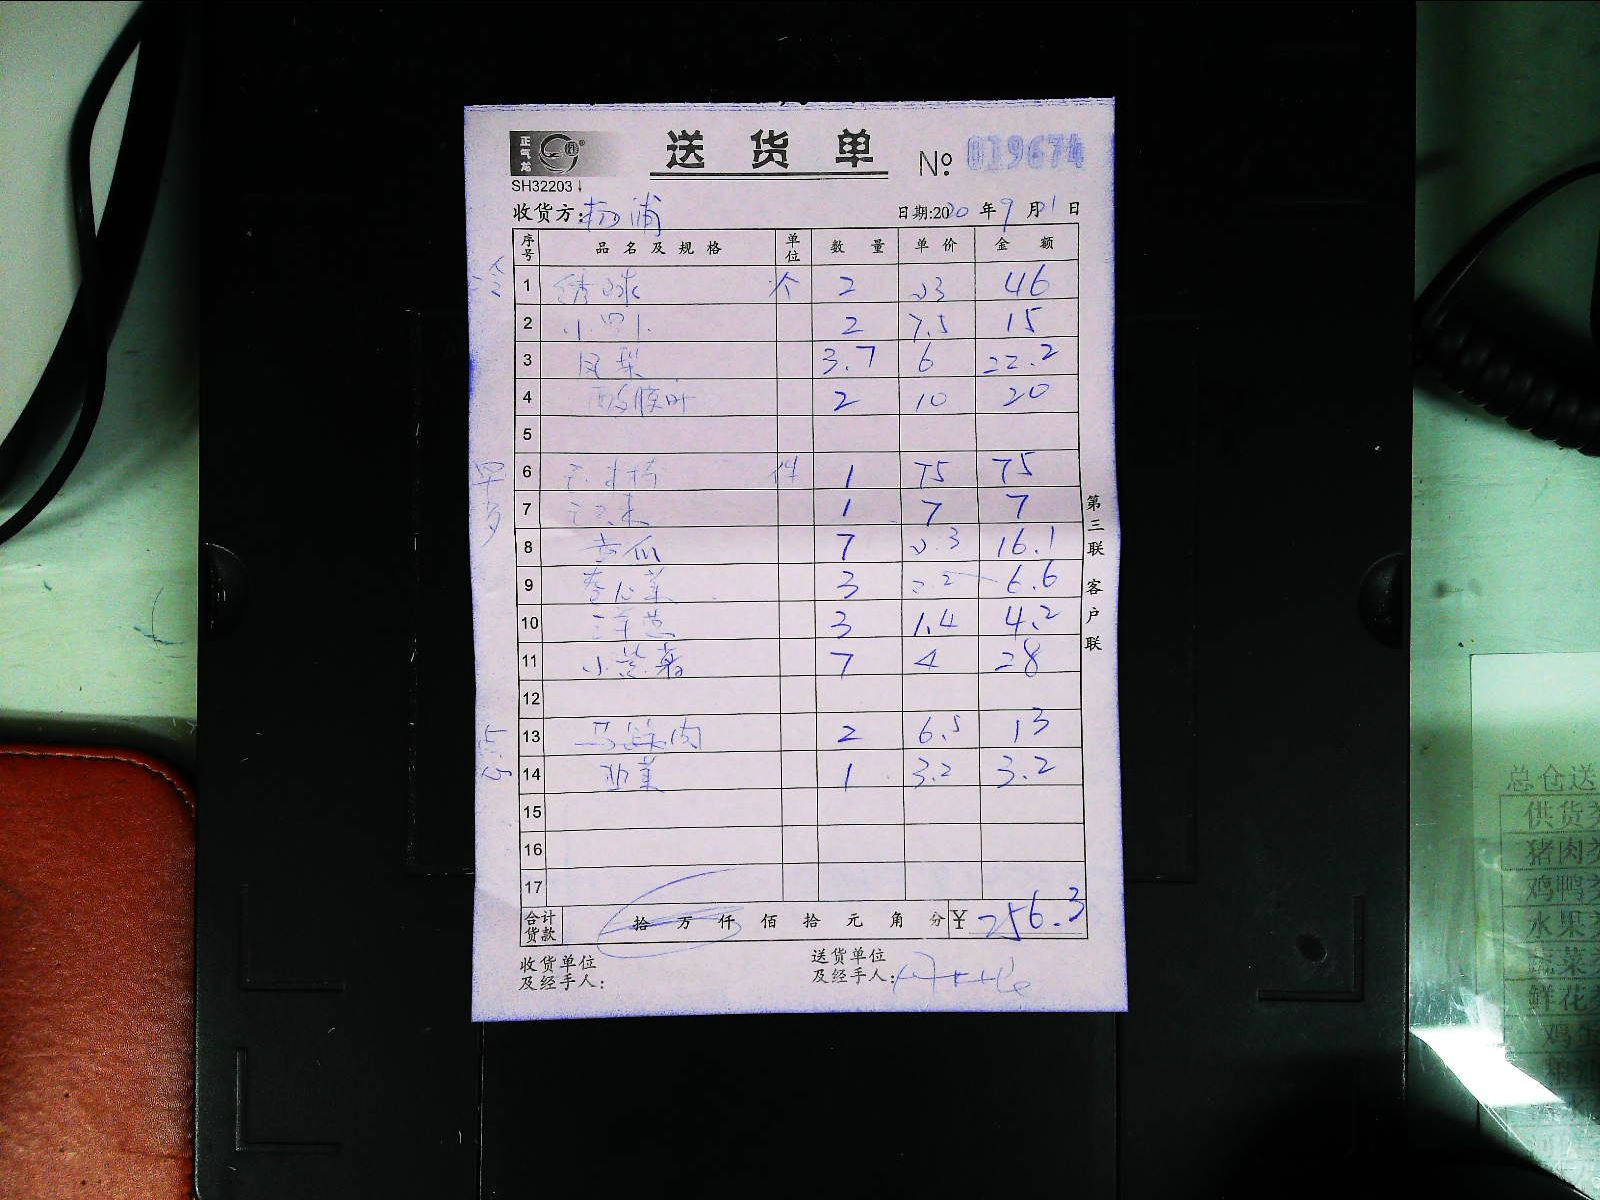 正气龙
送货单
№ 019674
SH32203
收货方:杨浦
日期:2020年9月21日
序号 品名及规格 单位 数量 单价 金额
冷
1 绣球 个 2 23 46
2 小四卜 2 7.5 15
3 凤梨 3.7 6 22.2
4 酸膜叶 2 10 20
5
6 件 1 75 75
7 玉米 1 7 7
8 黄瓜 7 2.3 16.1
9 卷心菜 3 2.2 6.6
10 洋葱 3 1.4 4.2
11 小 7 4 28
12
13 马蹄肉 2 6.5 13
14 韭菜 1 3.2 3.2
15
16
17
合计货款 拾万仟佰拾元角分 ¥256.3
收货单位
及经手人:
送货单位
及经手人:
第三联 客户联
总仓送
供货
猪肉
鸡鸭
水果
蔬菜
鲜花